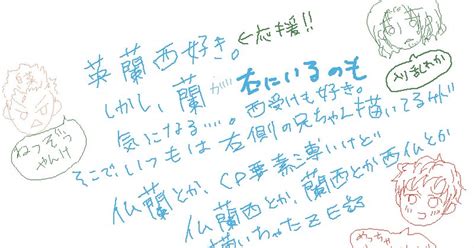 英蘭西好き。←応援!!
しかし、蘭が右にいるのも
気になる…。西受けも好き。
そこで、いつもは右側の兄ちゃん描いてるんだが
仏蘭とか、CP要素薄いけど
仏蘭西とか、蘭西とか西仏とか
描いちゃったZE
ねつぞう
やんけ
入り乱れか
めっちゃ